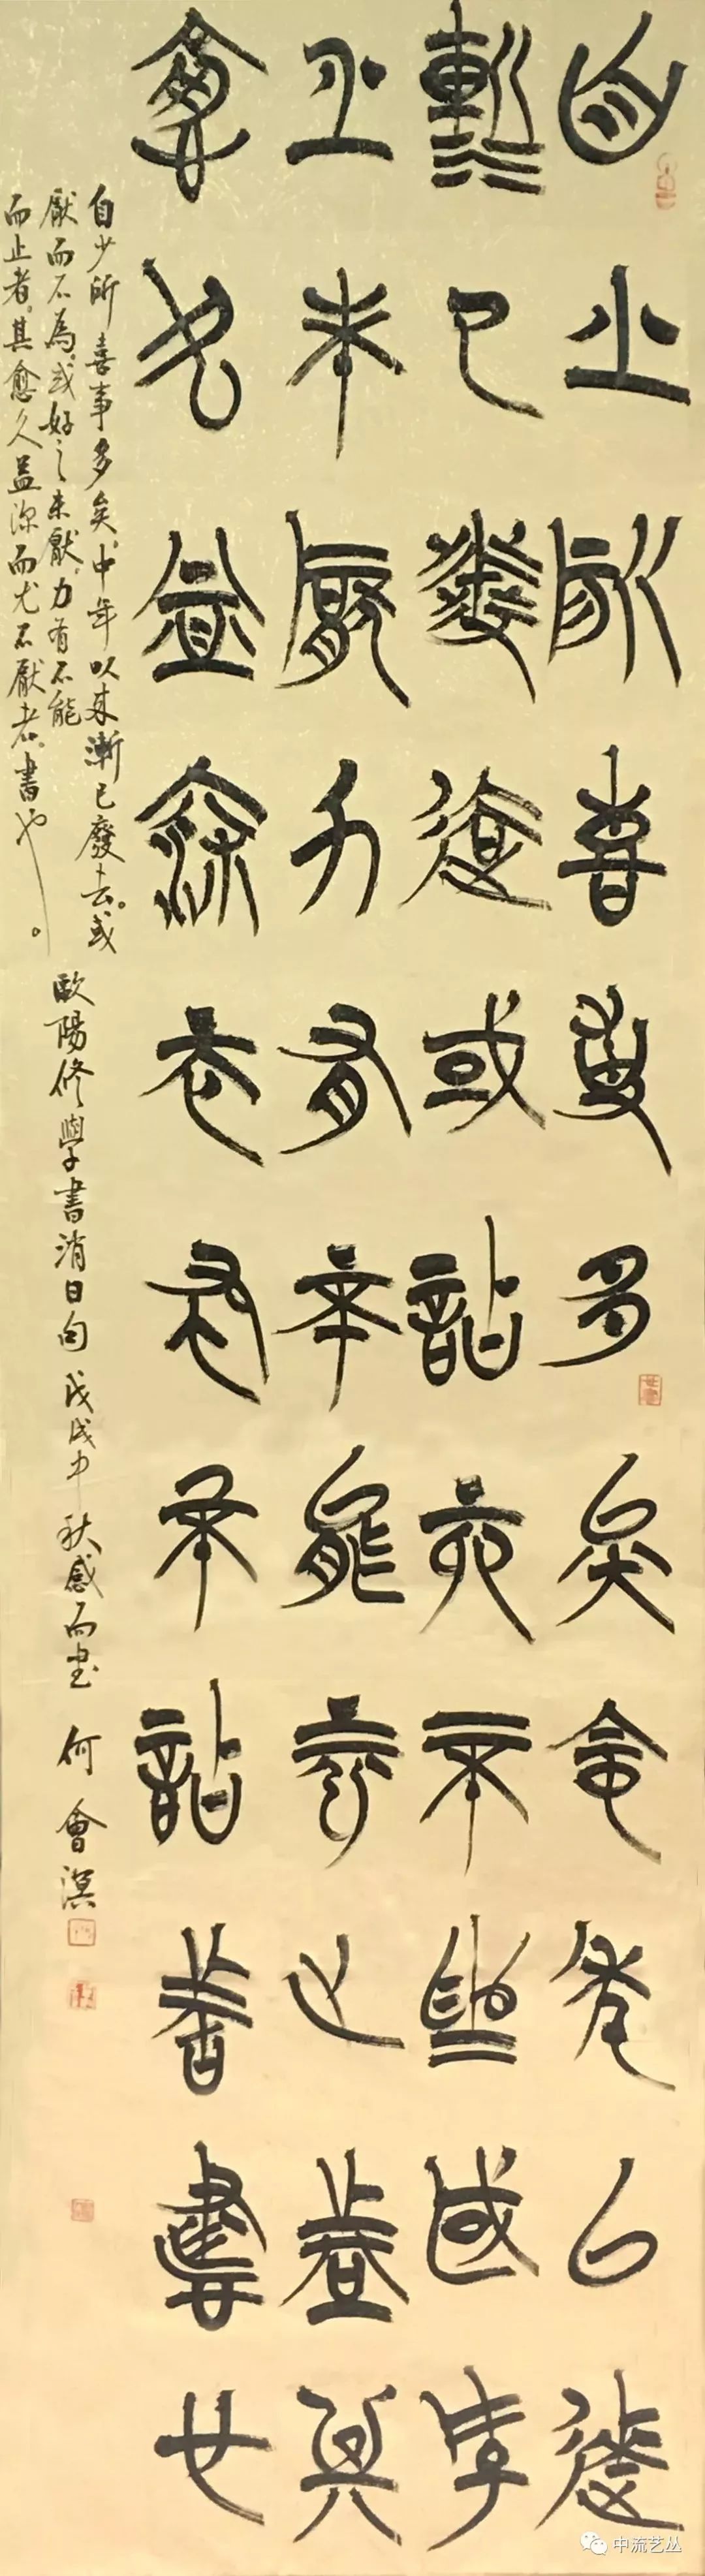 自少所喜事多矣中年以來
漸已廢去或厭而不為或好
之未厭力有不能而止者其
愈久益深而尤不厭者書也
自少所喜事多矣中年以来漸已廢去。或
厭而不為。或好之未厭力有不能
而止者。其愈久益深而尤不厭者。書也。
歐陽修學書消日句 戊戌中秋感而書 何會溟
中流艺丛